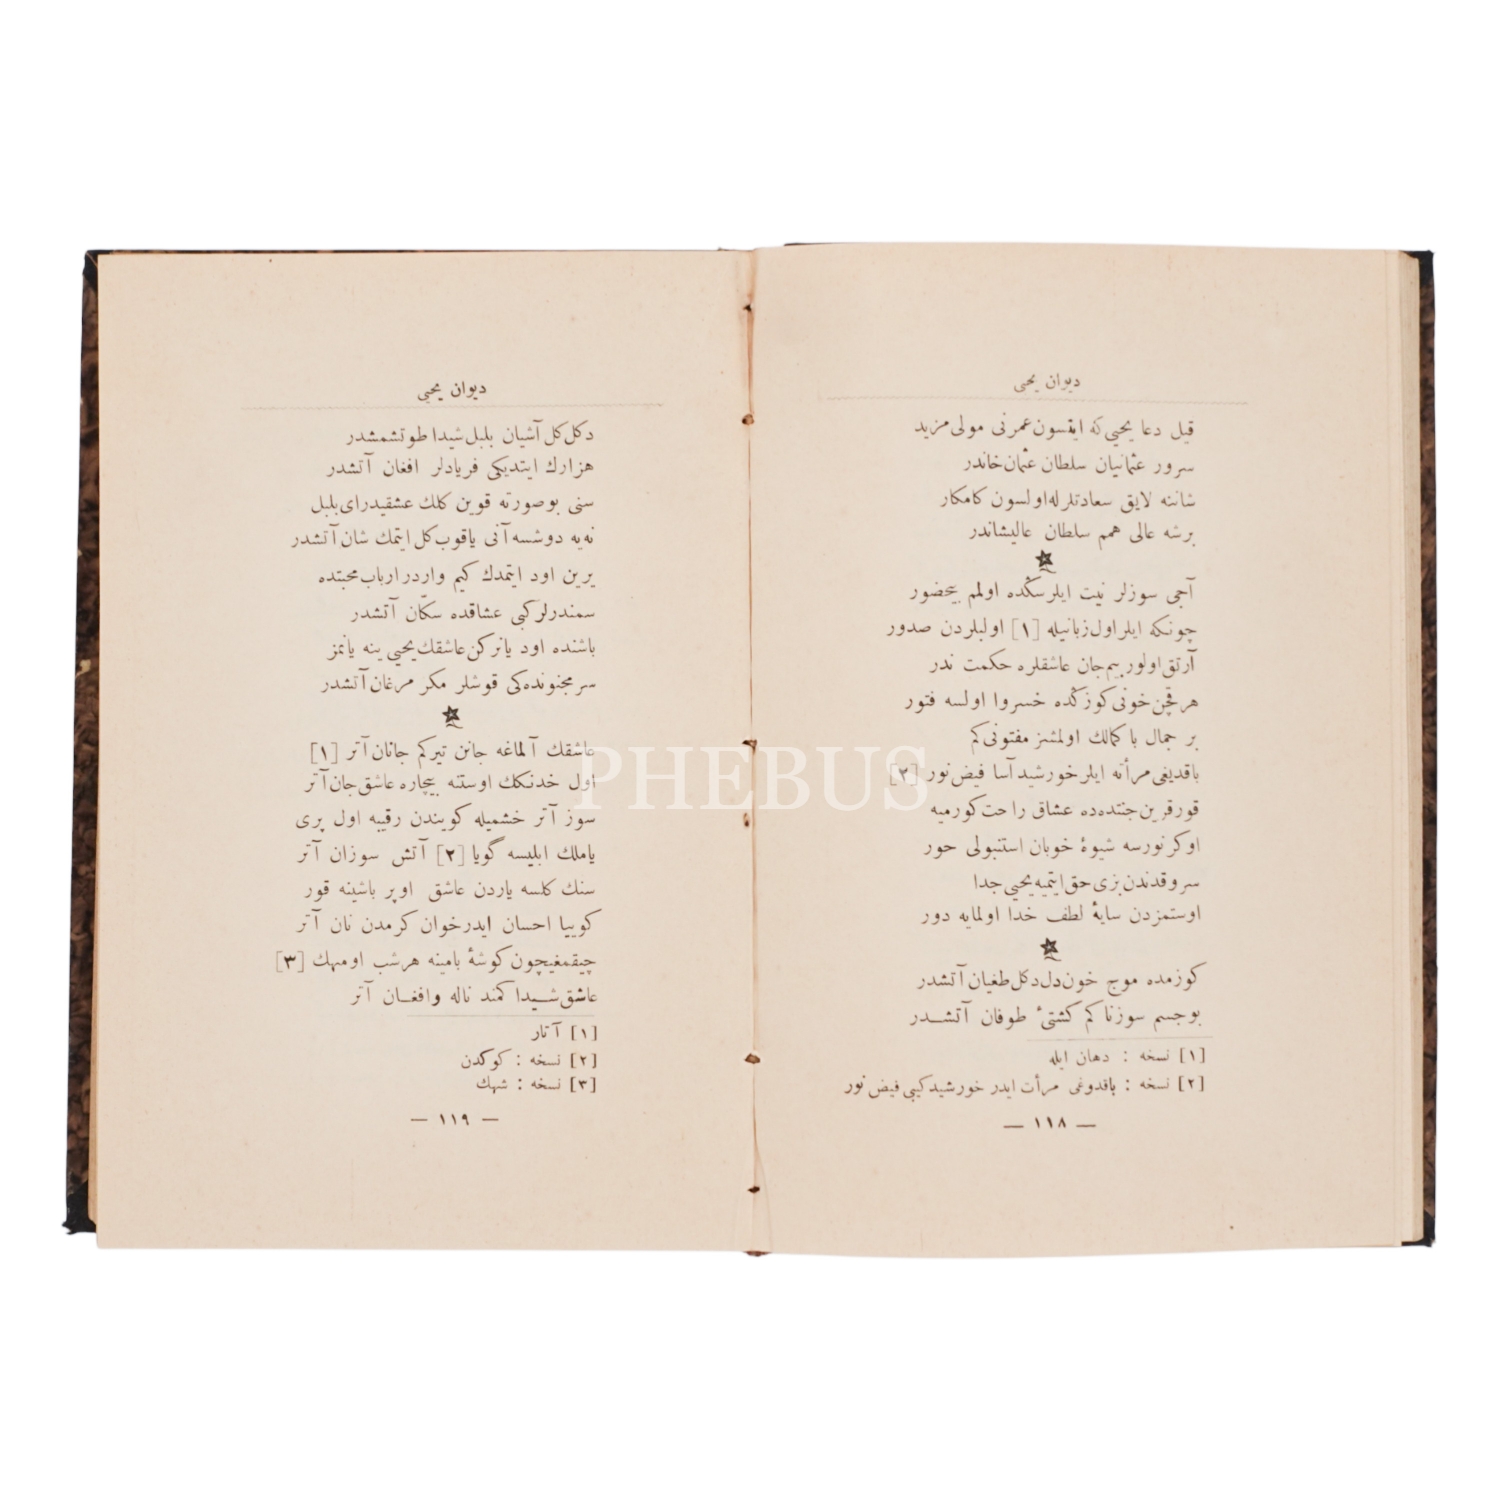 ديوان يحيى
قيل دعا يحيى كه ايتسون عمرنى مولى مزيد
سرور عثمانيان سلطان عثمان خاندر
شاننه لايق سعادتلرله اولسون كامكار
برشه عالى همم سلطان عاليشاندر
آجى سوزلر نيت ايلرسڭده اولمم بيحضور
چونكه ايلر اول زبانيله [١] اولبلردن صدور
آرتق اولور بيم جان عاشقلره حكمت ندر
هر قچن خونى كوزڭده خسروا اولسه فتور
بر جمال با كمالك اولمشز مفتونى كم
باقديغى مرأته ايلر خورشيد آسا فيض نور [٢]
قورقرين جنتده ده عشاق راحت كورميه
اوكرنورسه شيوۀ خوبان استنبولى حور
سروقدندن بزى حق ايتميه يحيى جدا
اوستمزدن سايۀ لطف خدا اولمايه دور
كوزمده موج خون دل دكل طغيان آتشدر
بوجسم سوزناكم كشتئ طوفان آتشدر
[١] نسخه : دهان ايله
[٢] نسخه : باقدوغى مرأت ايدر خورشيد كيبى فيض نور
— ١١٨ —
ديوان يحيى
دكل كل آشيان بلبل شيدا طوتشمشدر
هزارك ايتديكى فريادلر افغان آتشدر
سنى بوصورته قوين كلك عشقيدر اى بلبل
نه يه دوشسه آنى ياقوب كل ايتمك شان آتشدر
يرين اود ايتمدك كيم واردر ارباب محبتده
سمندرلر كبى عشاقده سكّان آتشدر
باشنده اود يانركن عاشقك يحيى ينه يانمز
سر مجنونده كى قوشلر مكر مرغان آتشدر
عاشقك آلماغه جانن تيركم جانان آتر [١]
اول خدنكك اوستنه بيچاره عاشق جان آتر
سوز آتر خشميله كويندن رقيبه اول پرى
ياملك ابليسه گويا [٢] آتش سوزان آتر
سنك كلسه ياردن عاشق اوپر باشينه قور
كوييا احسان ايدر خوان كرمدن نان آتر
چيقمغيچون كوشۀ بامينه هرشب اومهك [٣]
عاشق شيدا كمند ناله وافغان آتر
[١] آتار
[٢] نسخه : كوكدن
[٣] نسخه : شهك
— ١١٩ —
PHEBUS